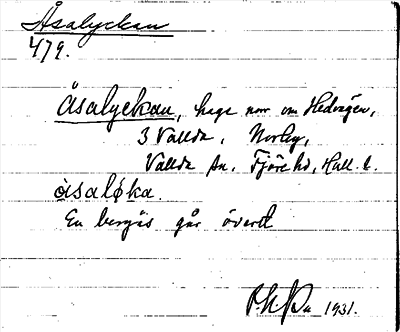 Åsalyckan
479.
Åsalyckan, hage norr om Hedvägen,
3 Vallda, Norby,
Vallda sn, Fjäre hd, Hall. l.
åsaløka.
En bergås går överst
1931.